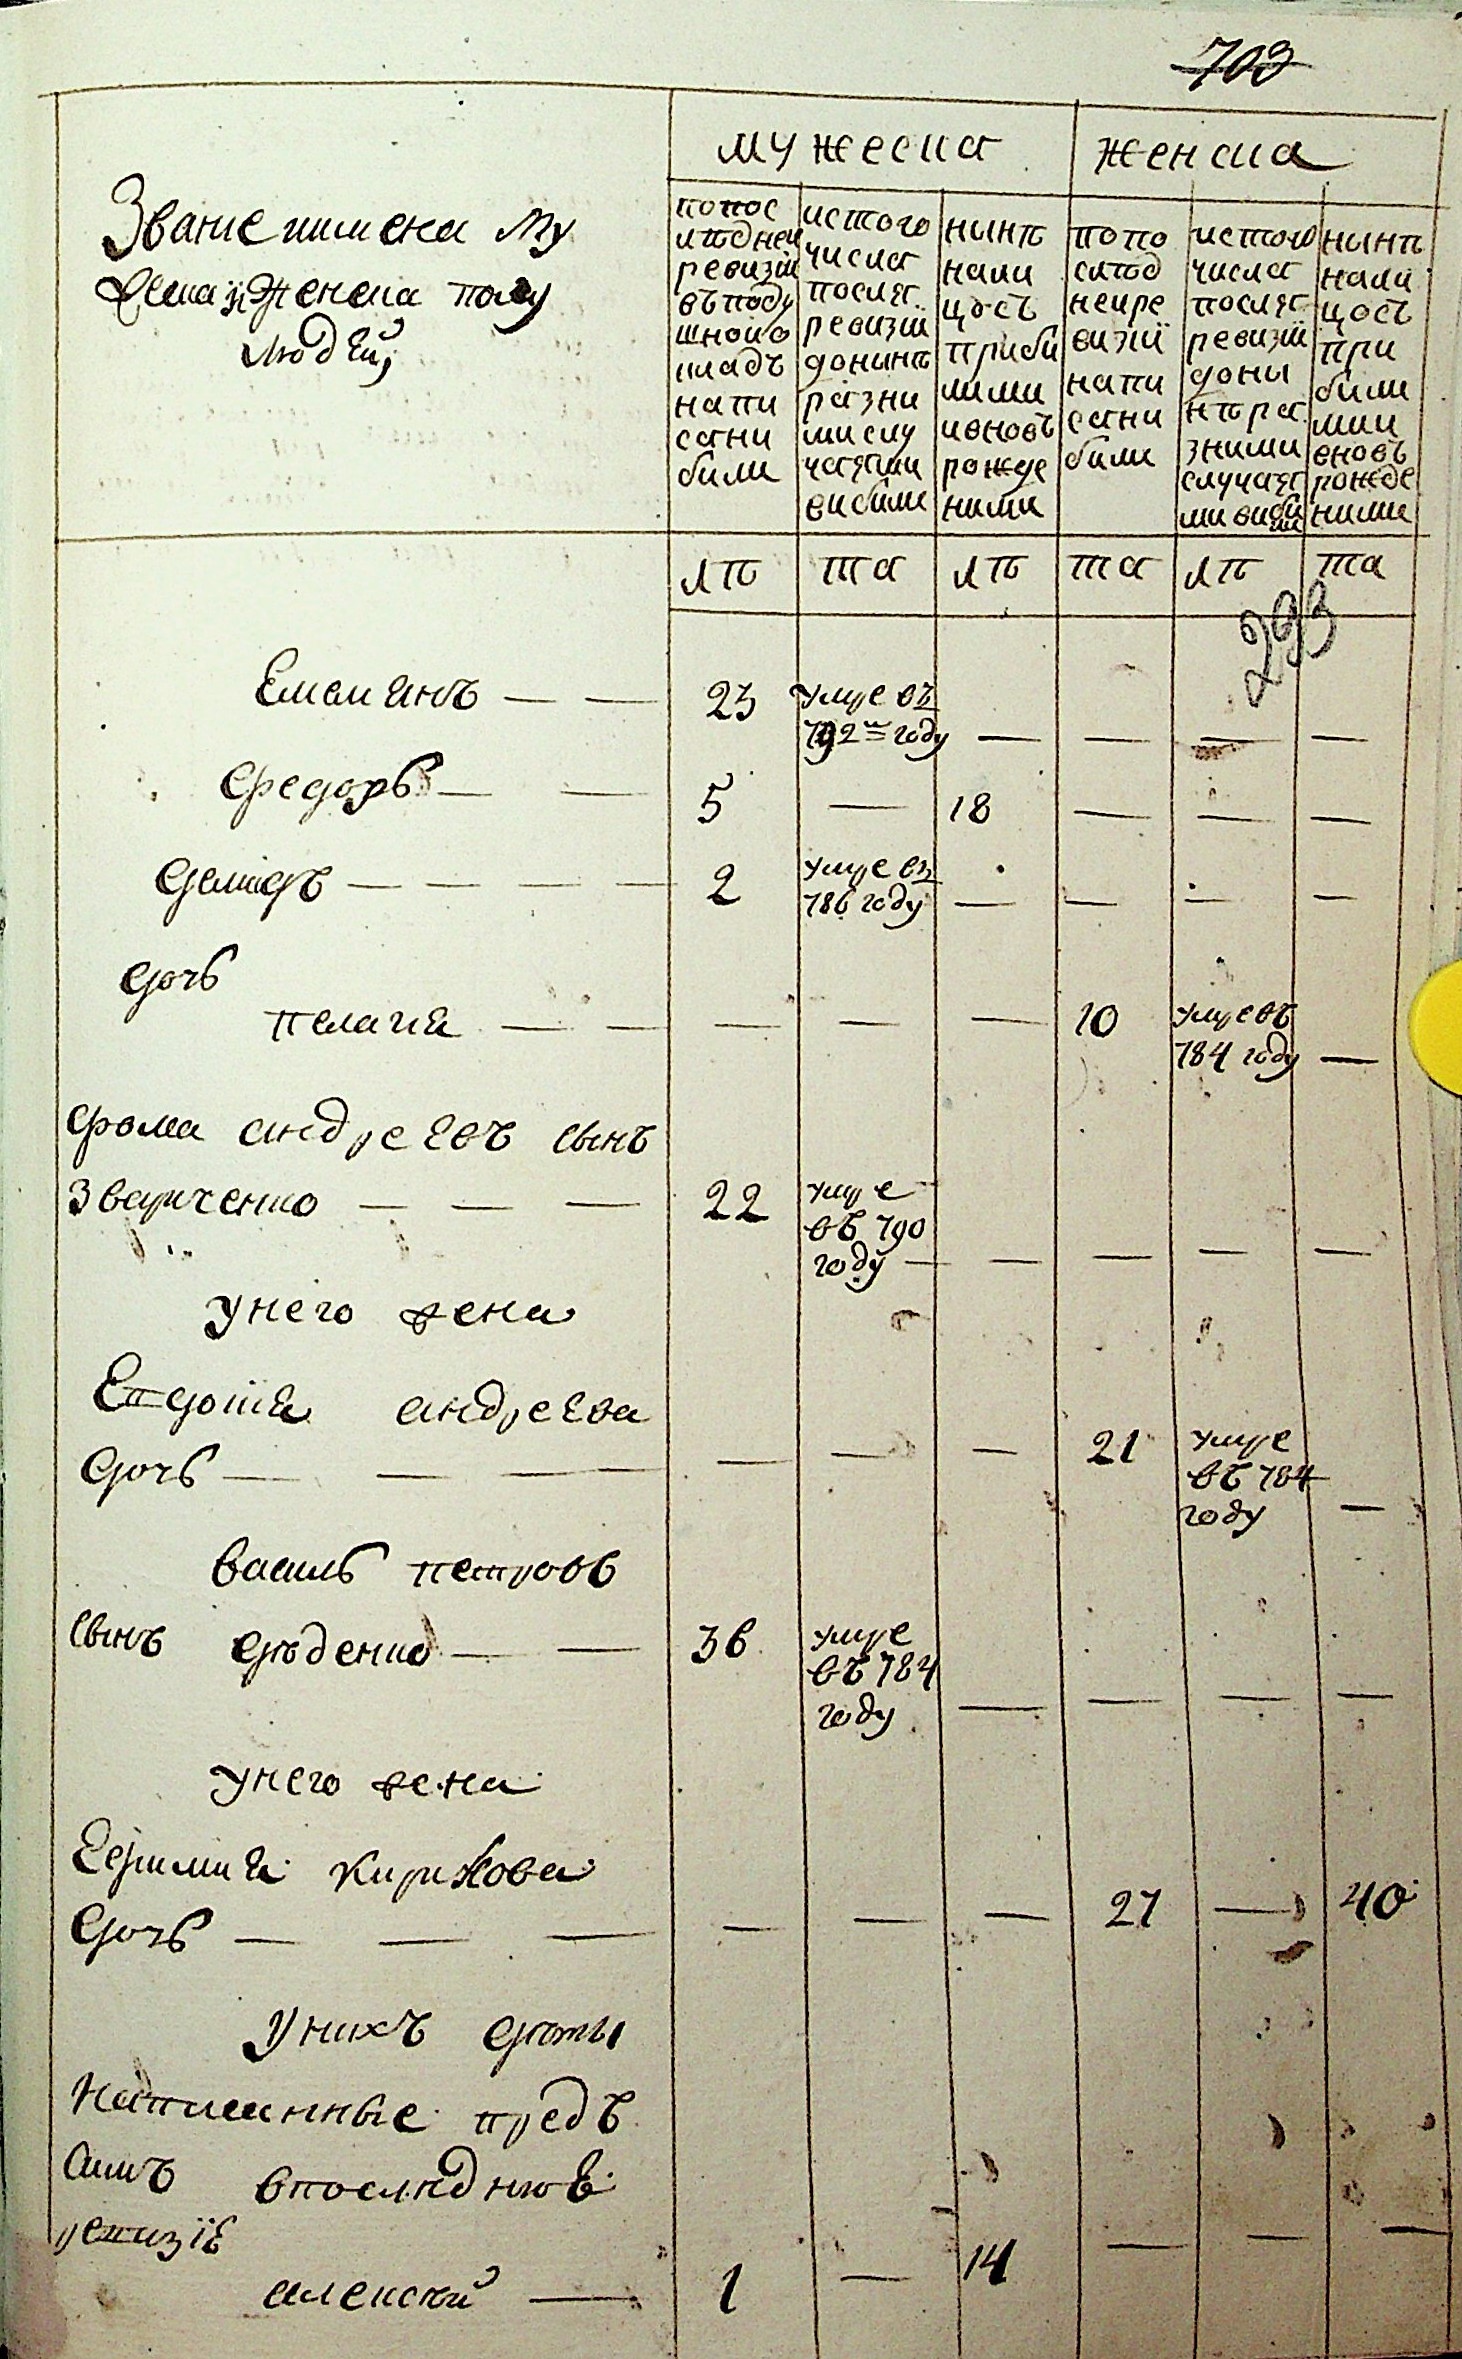 703
мужеска
женска
Звание имена му
жеска и женска полу
людей,
попос
лѣдней
ревизіи
въ поду
шной о
кладъ
напи
сани
били
истого
числа
после
ревизіи
до нынѣ
разни
ми слу
чаями
вибили
нынѣ
нали
цосъ
приби
лими
и вновъ
рожде
ними
попо
слѣд
ней ре
визіи
напи
сани
били
истого
числа
после
ревизіи
до ны
нѣ ра
зними
случая
ми виби
ли
нынѣ
нали
цосъ
при
били
ми и
вновъ
рожде
ними
лѣ та лѣ та лѣ та
293
Емелянъ — — 23 умре въ
792м году — — — —
Федоръ — — 5 — 18 — — —
Демидъ — — — — 2 умре въ
786 году — — — —
Дочь
Пелагия — — — — — 10 умре въ
784 году —
Фома андреевъ сынъ
Звариченко — — — 22 умре
въ 790
году — — — — —
У него жена
Евдокия андреева
Дочь — — — — — — 21 умре
въ 784
году —
Василь петровъ
сынъ Дѣденко — — 36 умре
въ 784
году — — — —
У него жена
Ефимия Кирилова
Дочь — — — — — — 27 — 40
У нихъ Дѣти
Написанные предъ
симъ впоследнюю
ревизіе
алексѣй — 1 — 14 — — —